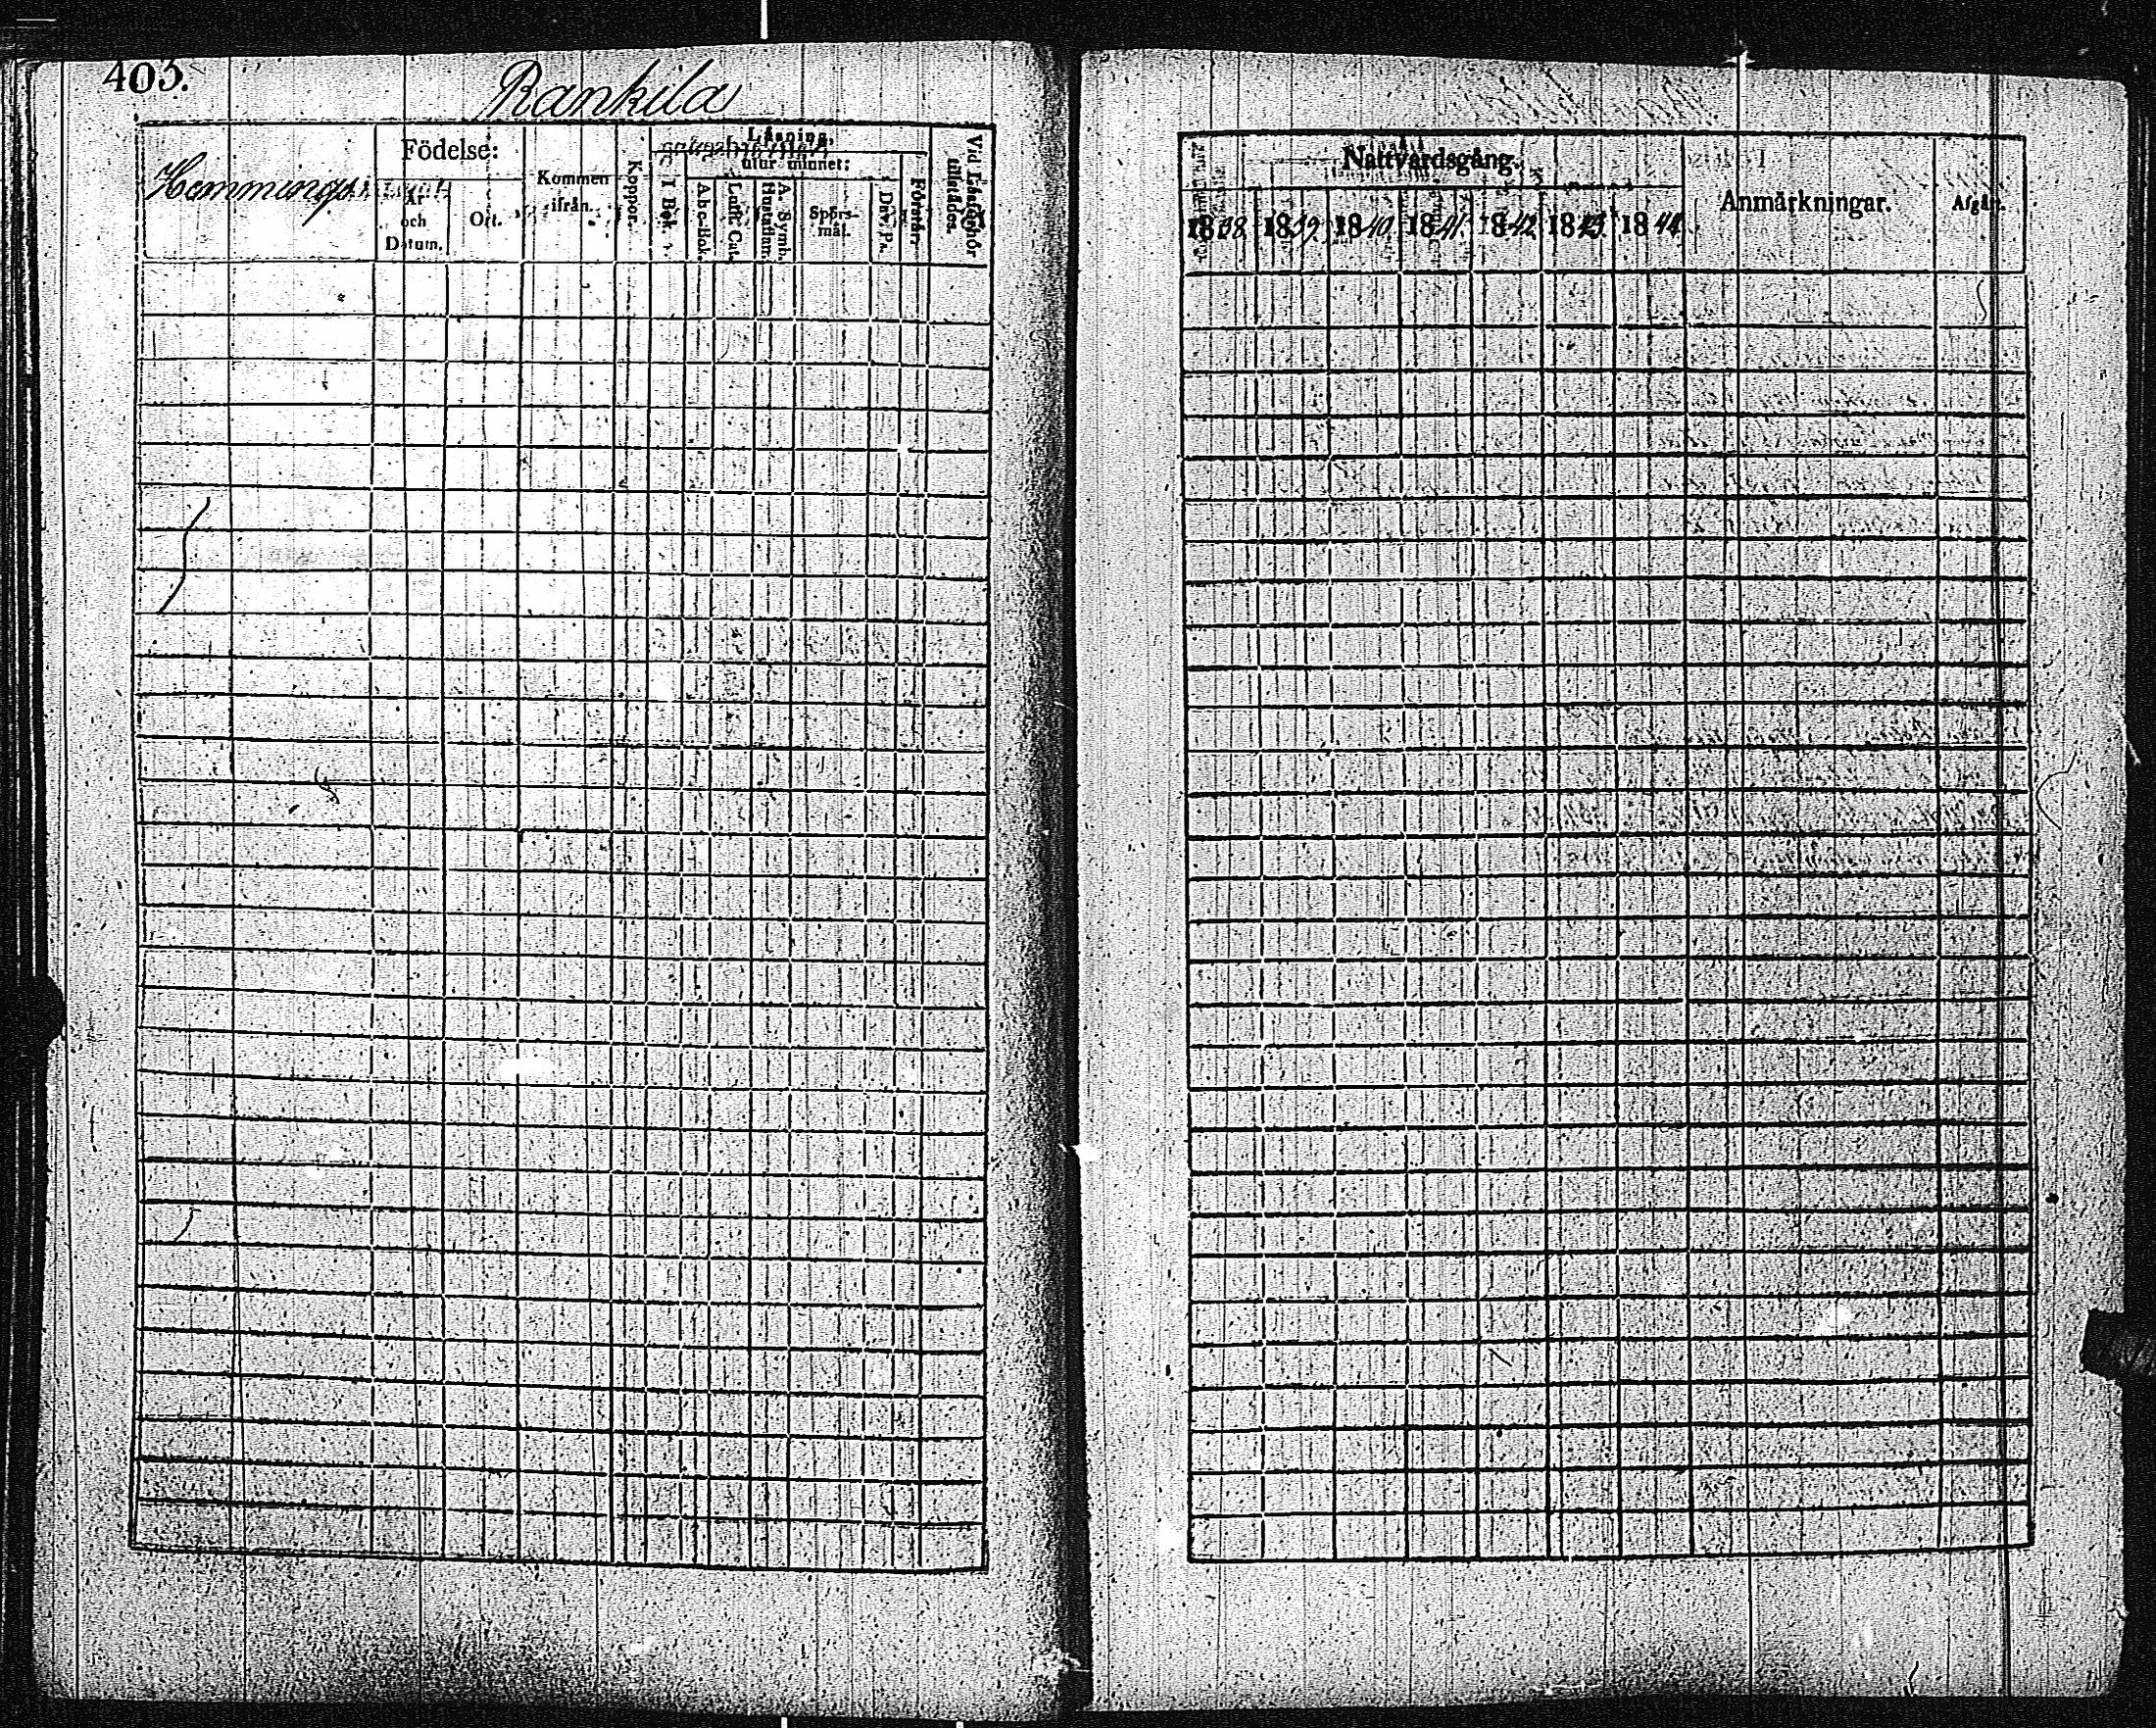 403.
Rankila
Hemmings
Födelse:
År och Datum.
Ort.
Kommen ifrån.
Koppor.
Läsning,
I Bok.
utur minnet:
A b c-Bok.
Luth. Cat.
A. Symb. Hustaflan.
Spörs-mål.
Dav. Ps.
Förstår.
Vid Läsförhör tillstädes.
Nattvardsgång.
1838. 1839. 1840 1841. 1842. 1843. 1844.
Anmärkningar.
Afgått.